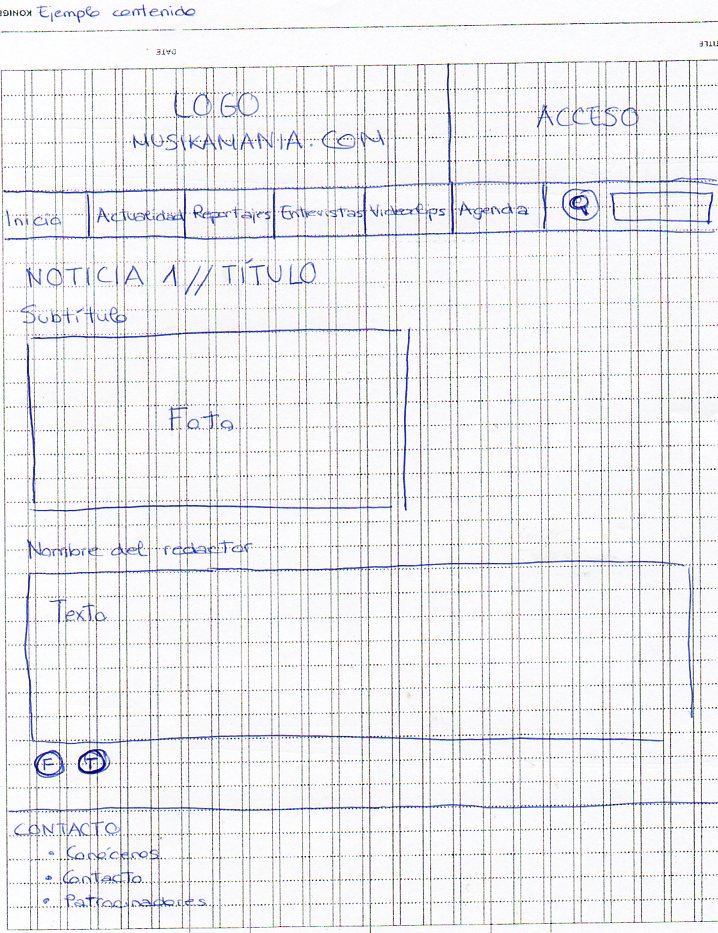 Ejemplo contenido
DATE
TITLE
LOGO
MUSIKAMANIA.COM
ACCESO
Inicio Actualidad Reportajes Entrevistas Videoclips Agenda
NOTICIA 1 // TÍTULO
Subtítulo
Foto
Nombre del redactor
Texto
F T
CONTACTO
• Conócenos
• Contacto
• Patrocinadores